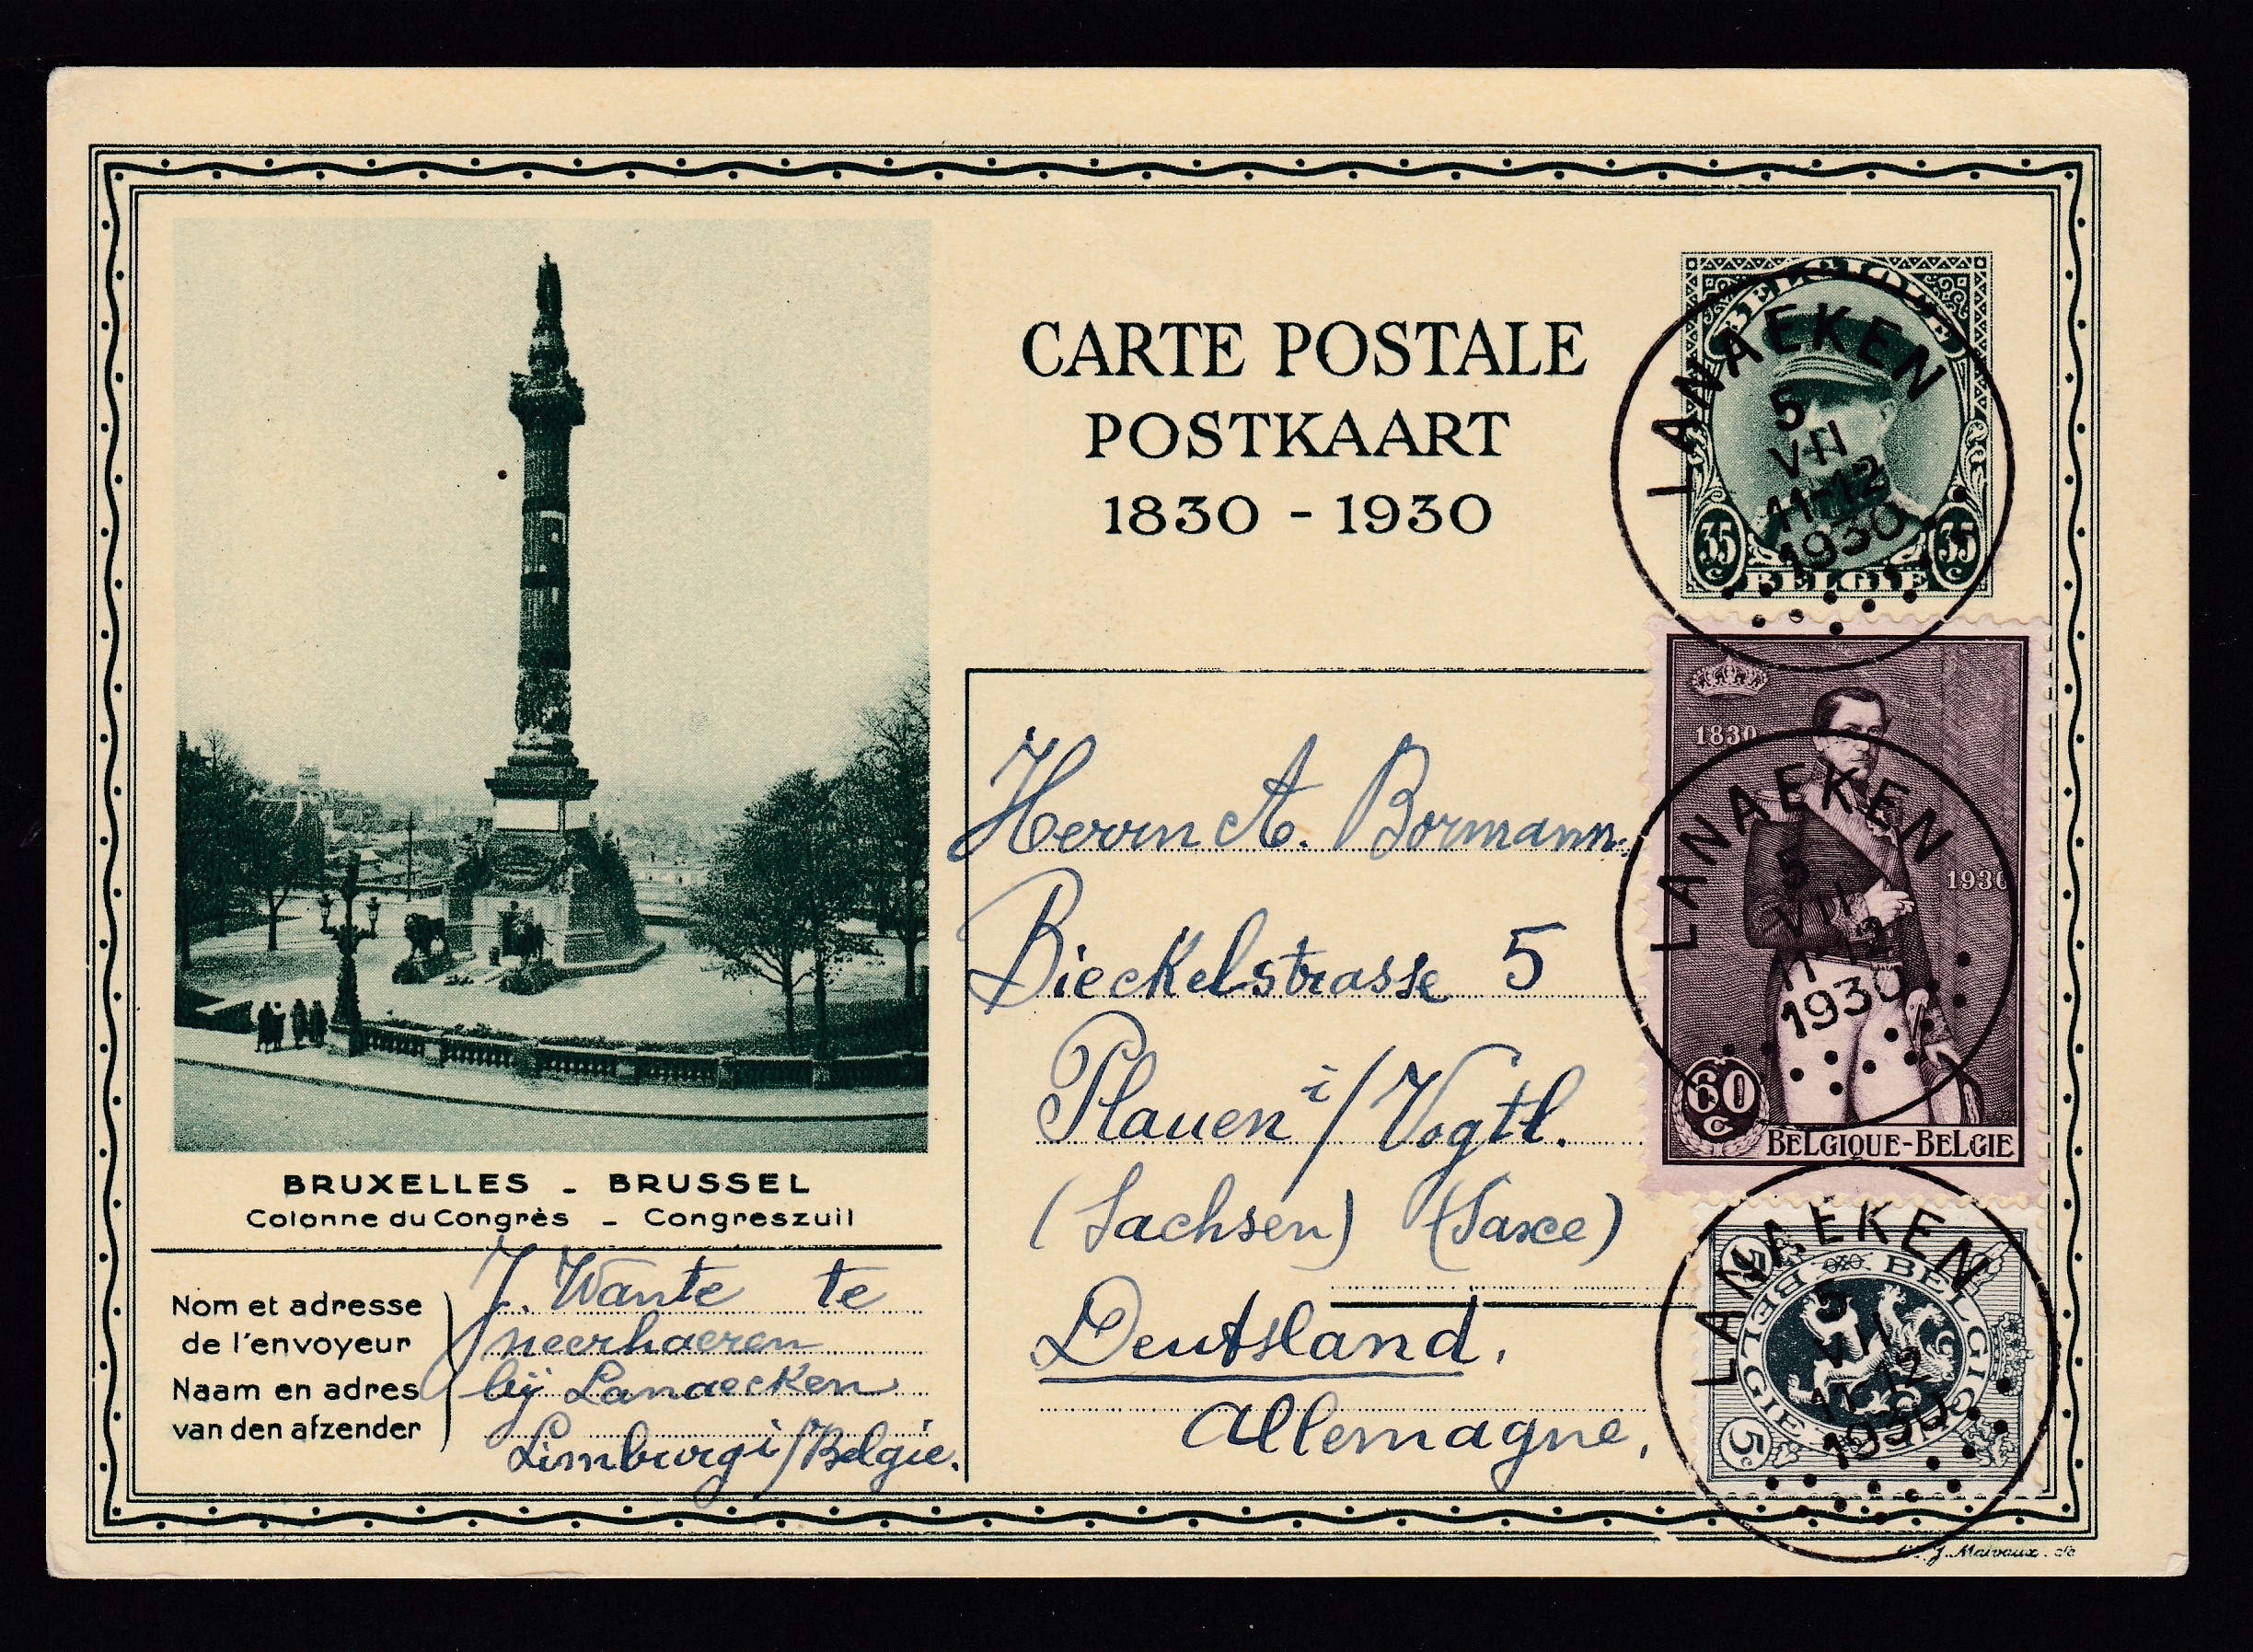 CARTE POSTALE
POSTKAART
1830 - 1930
BELGIQUE
35 c
35 c
BELGIË
LANAEKEN
5
VII
11-12
1930
1830
1930
60 c
BELGIQUE-BELGIE
LANAEKEN
5
VII
11-12
1930
5c
BELGIQUE
BELGIE
5c
LANAEKEN
5
VII
11-12
1930
Herrn A. Bormann.
Bieckelstrasse 5
Plauen i/Vogtl.
(Sachsen) (Saxe)
Deutsland.
Allemagne.
BRUXELLES - BRUSSEL
Colonne du Congrès - Congreszuil
Nom et adresse
de l'envoyeur
Naam en adres
van den afzender
J. Wante te
neerhaeren
bij Lanaecken
Limburg i/Belgie.
J. Malvaux